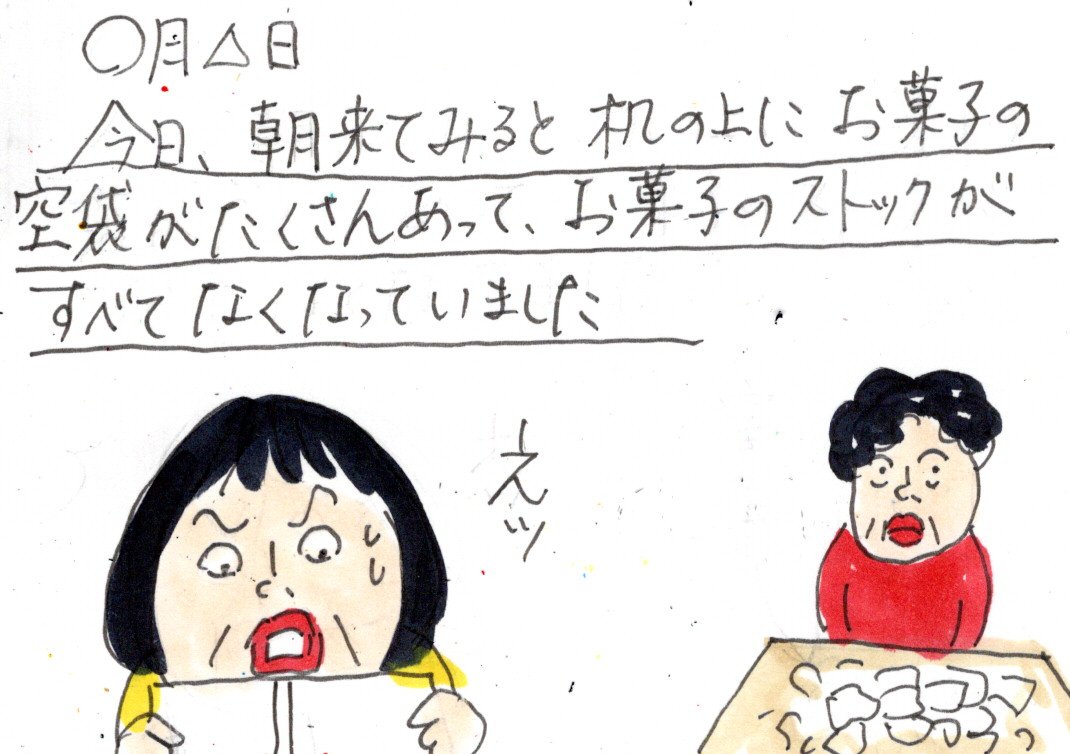 〇月△日
今日、朝来てみると机の上にお菓子の
空袋がたくさんあって、お菓子のストックが
すべてなくなっていました
えッ